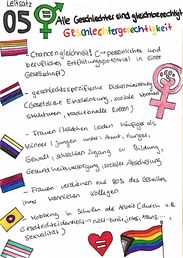 Leitsatz
05 Alle Geschlechter sind gleichberechtigt
Geschlechtergerechtigkeit
- Chancengleichheit! (→ persönliches und
berufliches Entfaltungspotential in einer
Gesellschaft)
- geschlechtsspezifische Diskriminierung
(Gesetzliche Einschränkung, soziale
Strukturen, traditionelle Rollen)
- Frauen / Mädchen leiden häufiger als
Männer / Jungen unter: Armut, Hunger,
Gewalt, schlechten Zugang zu Bildung,
Gesundheitsversorgung, sozialer Absicherung
- Frauen verdienen nur 80% des Gehalts
ihres männlichen Kollegen
- Mobbing in Schulen oder Arbeit (durch z.B.
Geschlechtsidentität → nicht-binär, inter, trans
Sexualität)